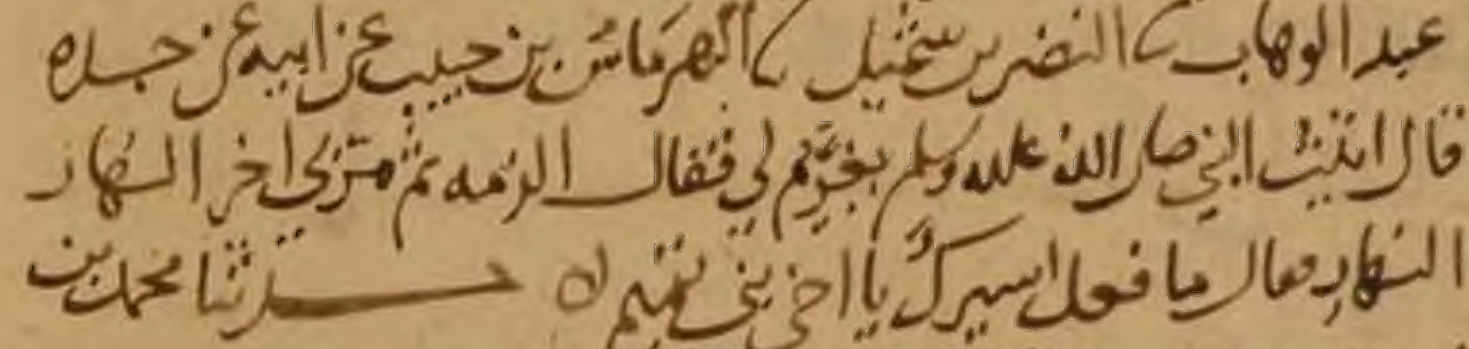 عبد الوهاب ثنا النضر بن شميل ثنا الهرماس بن حبيب عن ابيه عن جده
قال اتيت النبي صلى الله عليه وسلم بغريم لي فقال الزمه ثم مر بي اخر النهار
النهار فقال ما فعل اسيرك يا اخي بني تميم ه حدثنا محمد بن